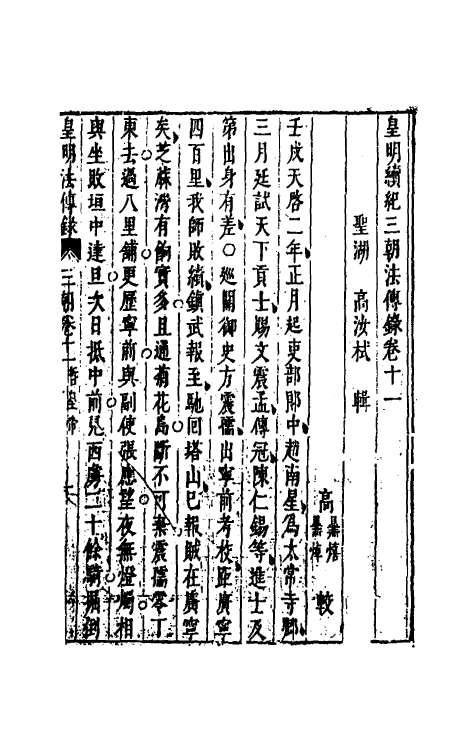 皇明續紀三朝法傳錄卷十一
聖湖 高汝栻 輯
高 較
壬戌天啓二年正月起吏部郎中趙南星爲太常寺卿
三月廷試天下貢士賜文震孟傅冠陳仁錫等進士及
第出身有差○巡關御史方震孺出寧前考校距廣寧
四百里我師敗績鎮武報至馳回塔山已報賊在廣寧
矣芝蔴灣有餉實多且通菊花島斷不可棄震孺零丁
東去過八里鋪更歷寧前與副使張應望夜無燈燭相
與坐敗垣中達旦次日抵中前見西虜二十餘騎掘倒
皇明法傳錄 三朝卷十一